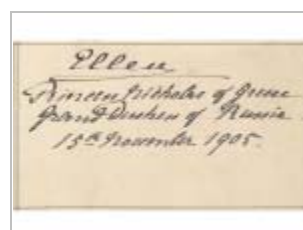 Ellen
Princess Nicholas of Greece
Grand Duchess of Russia
15th November 1905.